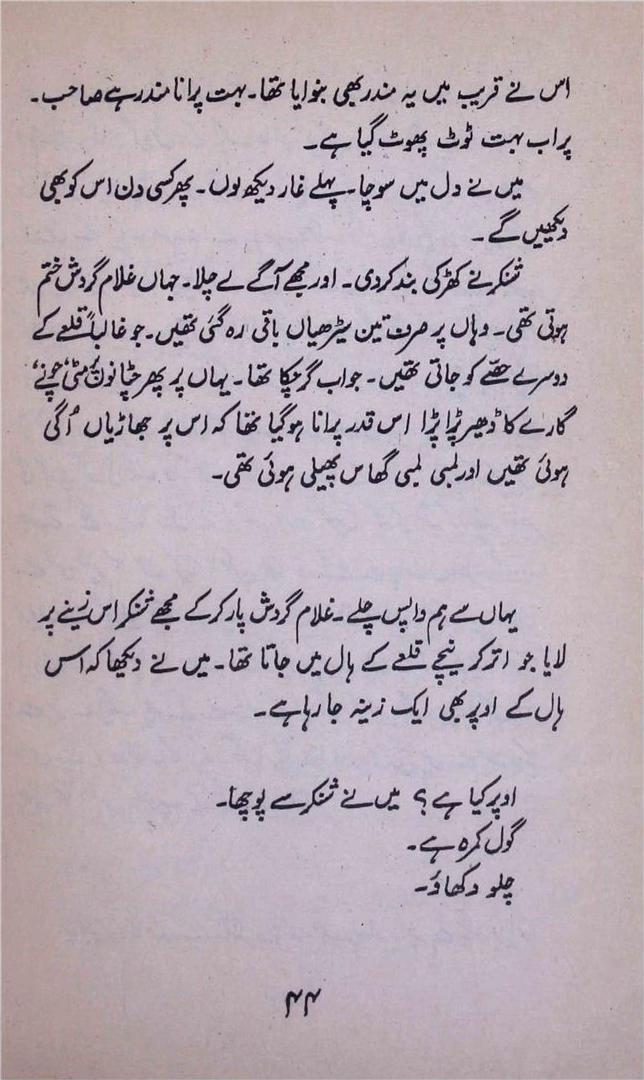 اس نے قریب میں یہ مندر بھی بنوایا تھا۔ بہت پرانا مندر ہے صاحب۔
پر اب بہت ٹوٹ پھوٹ گیا ہے۔
میں نے دل میں سوچا۔ پہلے غار دیکھ لوں۔ پھر کسی دن اس کو بھی
دیکھیں گے۔
شنکر نے کھڑکی بند کر دی۔ اور مجھے آگے لے چلا۔ جہاں غلام گردش ختم
ہوتی تھی۔ وہاں پر صرف تین سیڑھیاں باقی رہ گئی تھیں۔ جو غالباً قلعے کے
دوسرے حصّے کو جاتی تھیں۔ جو اب گر چکا تھا۔ یہاں پر پھر چٹانوں، مٹی، چونے،
گارے کا ڈھیر پڑا پڑا اس قدر پرانا ہو گیا تھا کہ اس پر جھاڑیاں اُگی
ہوئی تھیں اور لمبی لمبی گھاس پھیلی ہوئی تھی۔
یہاں سے ہم واپس چلے۔ غلام گردش پار کر کے مجھے شنکر اس زینے پر
لایا جو اتر کر نیچے قلعے کے ہال میں جاتا تھا۔ میں نے دیکھا کہ اس
ہال کے اوپر بھی ایک زینہ جا رہا ہے۔
اوپر کیا ہے؟ میں نے شنکر سے پوچھا۔
گول کمرہ ہے۔
چلو دکھاؤ۔
۴۴